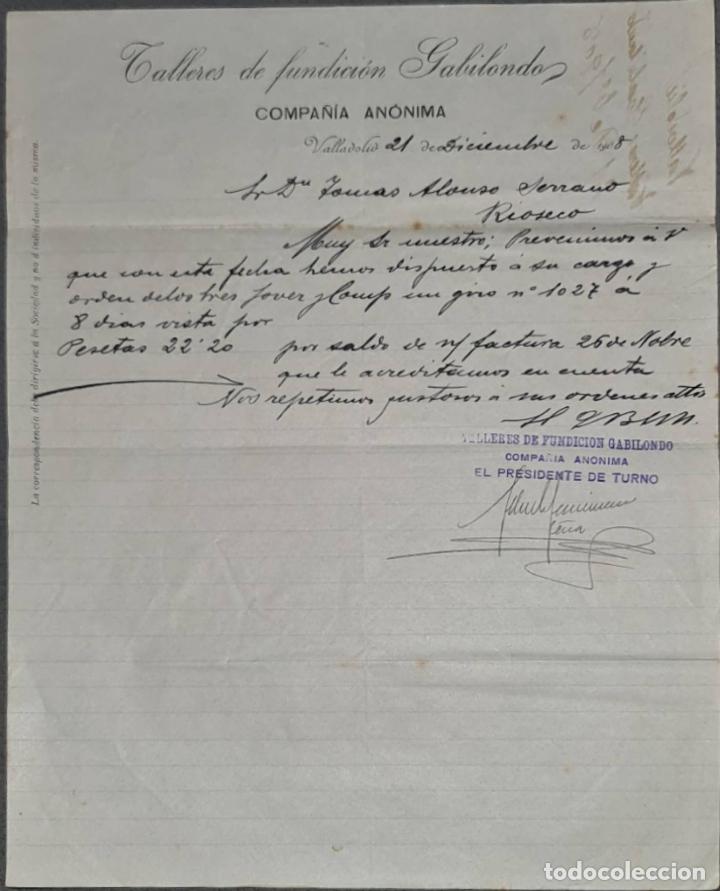 Talleres de fundición Gabilondo
COMPAÑÍA ANÓNIMA
Valladolid 21 de Diciembre de 1908
Sr Dn Tomas Alonso Serrano
Rioseco
Muy Sr nuestro; Prevenimos á V
que con esta fecha hemos dispuesto á su cargo y
orden de los Sres Jover y Comp un giro nº 1027 á
8 dias vista por
Pesetas 22'20 por saldo de n/ factura 26 de Nobre
que le acreditamos en cuenta
Nos repetimos gustosos á sus ordenes attos
TALLERES DE FUNDICION GABILONDO
COMPAÑIA ANONIMA
EL PRESIDENTE DE TURNO
La correspondencia debe dirigirse á la Sociedad y no á individuos de la misma.
todocoleccion